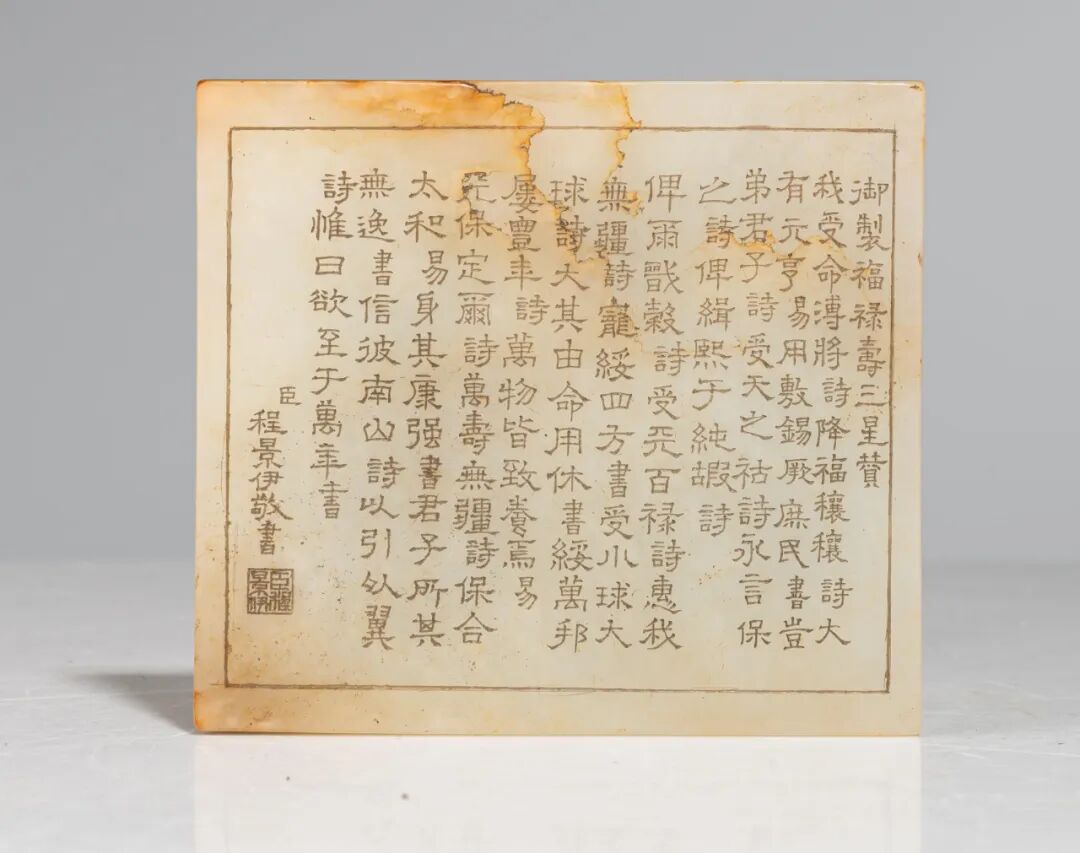 御製福禄壽三星贊
我受命溥將詩降福穰穰詩大
有元亨易用敷錫厥庶民書豈
弟君子詩受天之祜詩永言保
之詩俾緝熙于純嘏詩
俾爾戩穀詩受天百禄詩惠我
無疆詩寵綏四方書受小球大
球詩大其由命用休書綏萬邦
屢豐年詩萬物皆致養焉易
天保定爾詩萬壽無疆詩保合
太和易身其康强書君子所其
無逸書信彼南山詩以引以翼
詩惟曰欲至于萬年書
臣程景伊敬書
臣程景伊